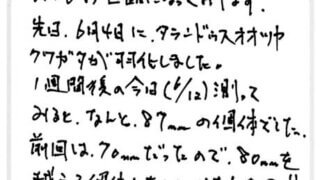 先日、6月4日に、タランドゥスオオツヤ
クワガタが羽化しました。
1週間後の今日(6/12)測って
みると、なんと、87mmの個体でした。
前回は、70mmだったので、80mmを